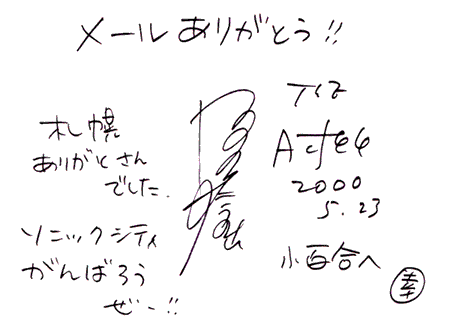 メールありがとう!!
札幌
ありがとさん
でした.
ソニックシティ
がんばろう
ぜー!!
2000
5.23
小百合へ
幸